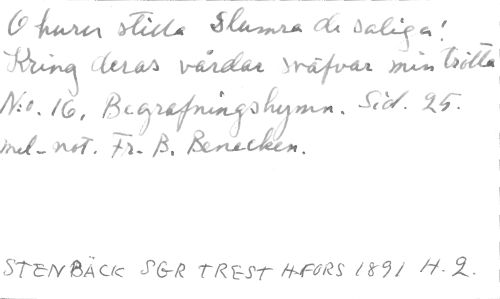 O huru stilla slumra de saliga!
Kring deras vårdar sväfvar min trötta
N:o. 16. Begrafningshymn. Sid. 25.
mel-not. Fr. B. Benecken.
STENBÄCK SGR TREST H-FORS 1891 H. 2.